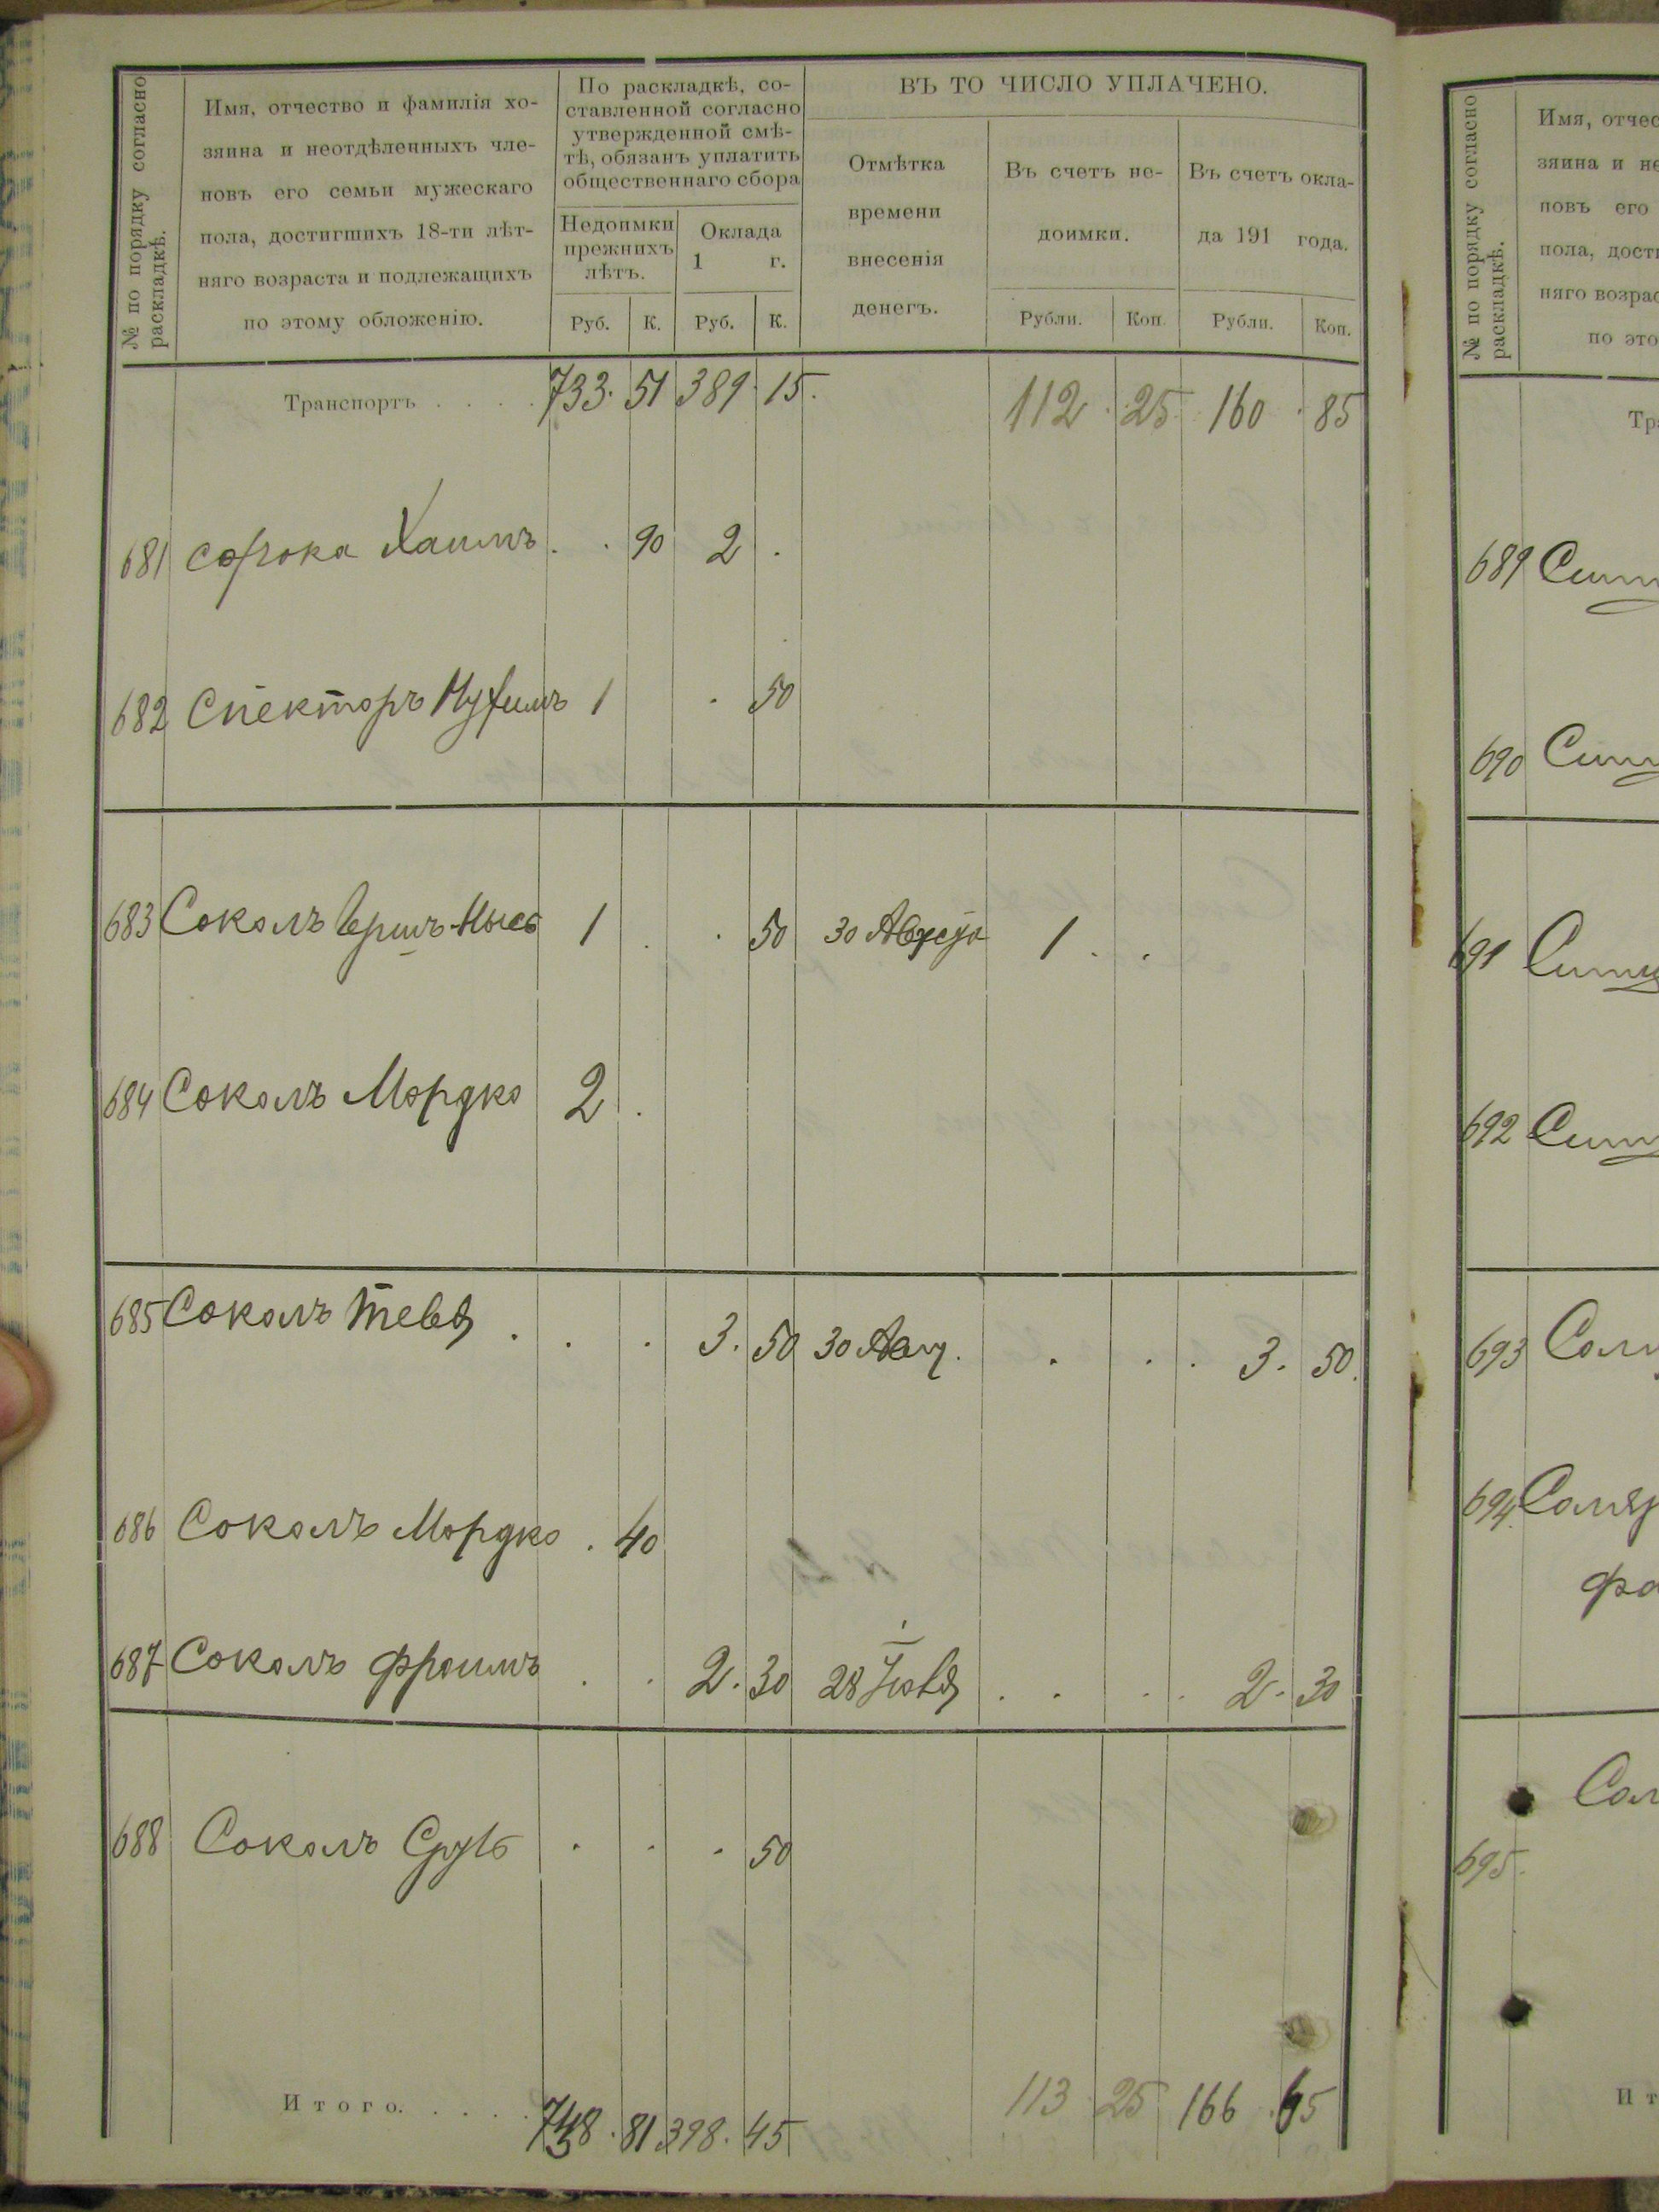 № по порядку согласно
раскладкѣ.
Имя, отчество и фамилія хо-
зяина и неотдѣленныхъ чле-
новъ его семьи мужескаго
пола, достигшихъ 18-ти лѣт-
няго возраста и подлежащихъ
по этому обложенію.
По раскладкѣ, со-
ставленной согласно
утвержденной смѣ-
тѣ, обязанъ уплатить
общественнаго сбора
Недоимки
прежнихъ
лѣтъ.
Оклада
1 г.
Руб. К. Руб. К.
ВЪ ТО ЧИСЛО УПЛАЧЕНО.
Отмѣтка
времени
внесенія
денегъ.
Въ счетъ не-
доимки.
Въ счетъ окла-
да 191 года.
Рубли. Коп. Рубли. Коп.
Транспортъ . . . . 733. 51 389. 15. 112. 25. 160. 85
681 Сорока Хаимъ . . 90 2 .
682 Спекторъ Нухимъ 1 . 50
683 Соколъ Герш 1 . . 50 30 1 . .
684 Соколъ Мордко 2 .
685 Соколъ Тевя . . . 3. 50 30 Авг. . . . 3. 50.
686 Соколъ Мордко . 40
687 Соколъ Фроимъ . . 2. 30 28 . . . . 2. 30
688 Соколъ . . . 50
Итого. . . . . 81 398. 45 113 25 166. 65
№ по порядку согласно
раскладкѣ.
Имя, отчес
зяина и не
новъ его
пола, дости
няго возрас
по это
Тра
689
690
691
692
693
694
695.
Ит